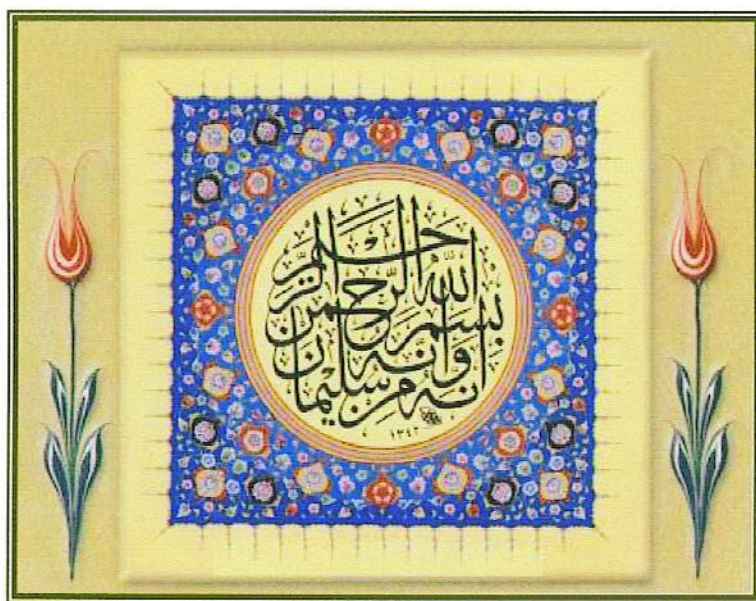 انه من سليمان وانه بسم الله الرحمن الرحيم
١٣٤٢